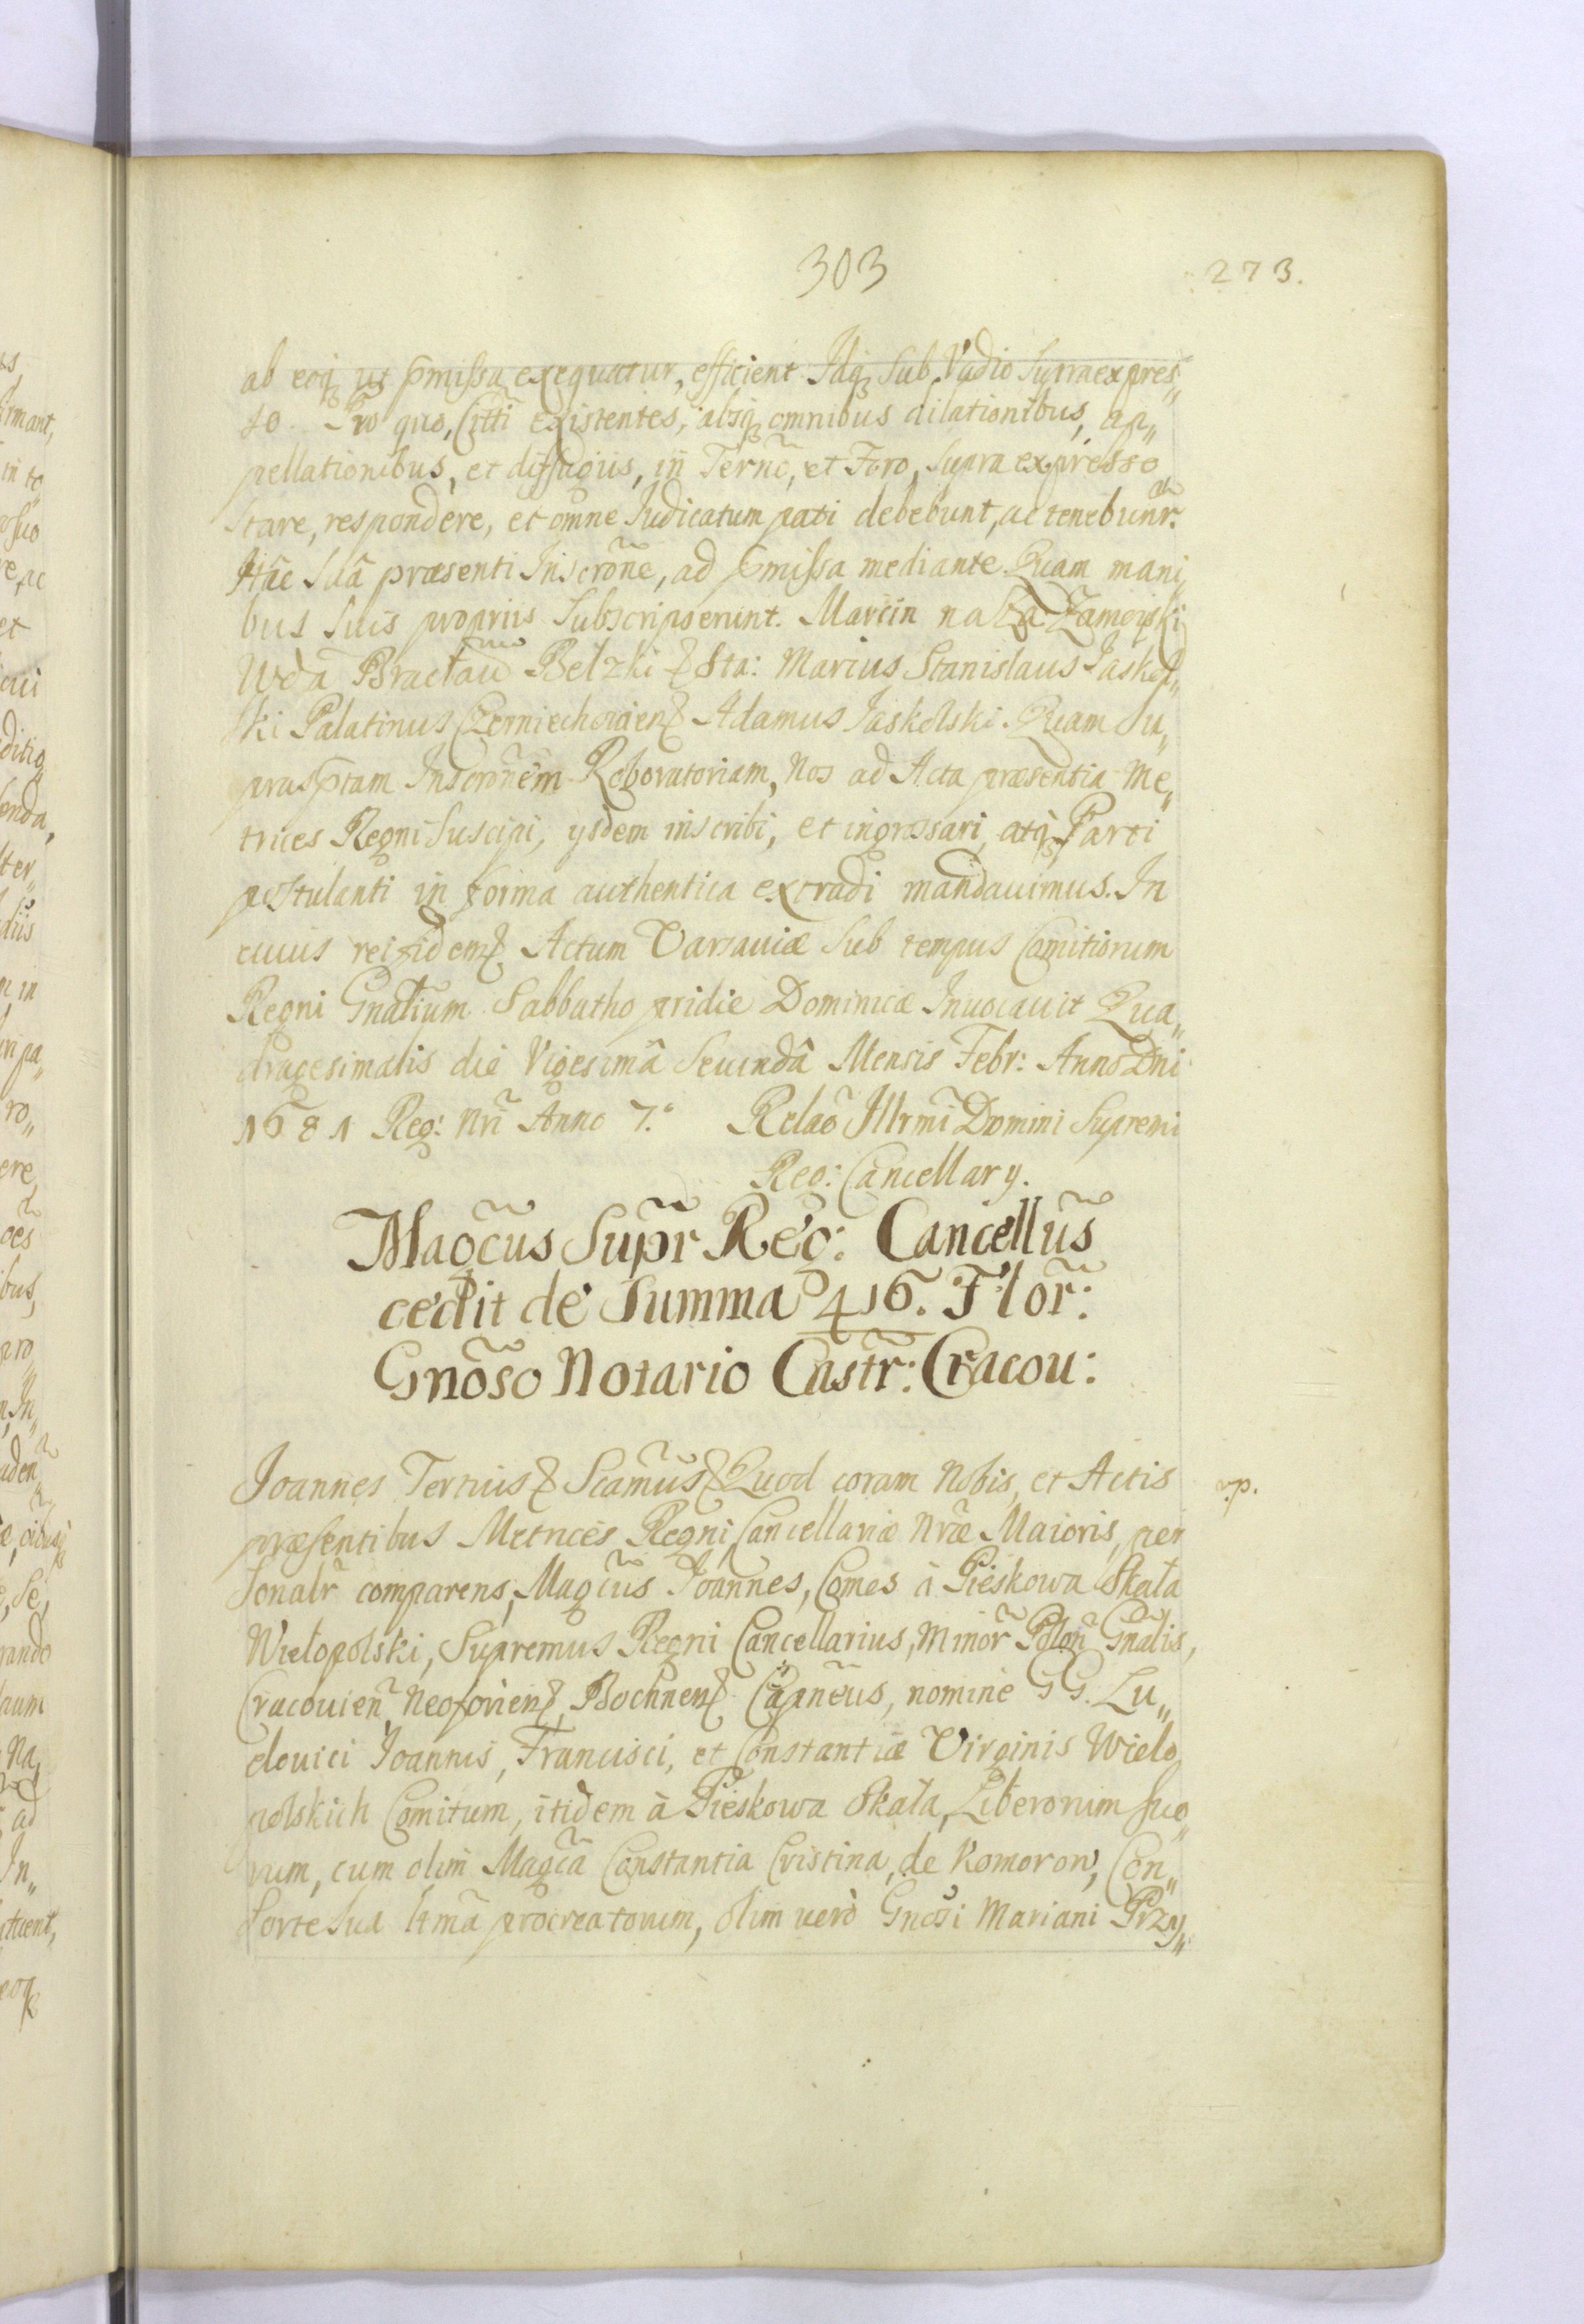 303
273.
ab eoq; ut p̃missa exequatur, efficient. Idq; Sub Vadio Supraexpres„
so. Pro quo, Citti existentes, absq; omnibus dilationibus, ap„
pellationibus, et diffugiis, in Ternõ, et Foro, supra expresso
stare, respondere, et omne Iudicatum pati debebunt, ac tenebunr̃.
Hãc suâ præsenti Inscrõne, ad p̃missa mediante. Quam mani
bus suis propriis subscripserunt. Marcin na Zamoyski
Wda Bracław̃ Bełzki & Sta: Marcus Stanislaus Jaskol„
ski Palatinus Czerniechovien̄ Adamus Jaskolski. Quam su„
prasp̃tam Inscrõnem Roboratoriam, Nos ad Acta præsentia Me„
trices Regni Suscipi, ysdem inscribi, et ingrossari, atq; Parti
postulanti in forma authentica extradi mandauimus. In
cuius rei fidem & Actum Varsauiæ sub tempus Comitiorum
Regni Gñalium Sabbatho pridie Dominicæ Inuocauit Qua„
dragesimalis die Vigesimâ Secundâ Mensis Febr: Anno Dñi
1681 Reg: Nrĩ Anno 7.° Relaõ Illrmĩ Domini Supremi
Reg: Cancellary.
Magcũs Supr̃ Reg: Cancellũs
cedit de Summa 416. Flor̃:
Gnõso Notario Castr̃: Cracou:
Joannes Tertius & Scãmus & Quod coram Nobis, et Actis
præsentibus Metrices Regni Cancellariæ Nræ̃ Maioris, per
sonalr̃ comparens, Magcũs Joannes, Comes à Pieskowa Skała
Wielopolski, Supremus Regni Cancellarius, Minor̃ Polon̄ Gñalis,
Cracouien̄ Neoforien̄ Bochnen̄ Capnẽus, nomine GG. Lu„
douici Joannis, Francisci, et Constantiæ Virginis Wielo
polskich Comitum, itidem à Pieskowa Skała, Liberorum suo„
rum, cum olim Magcã Constantia Cristina, de Komorow, Con„
sorte sua ltmã procreatorum, olim verò Gnosi Mariani Przy„
v.p.